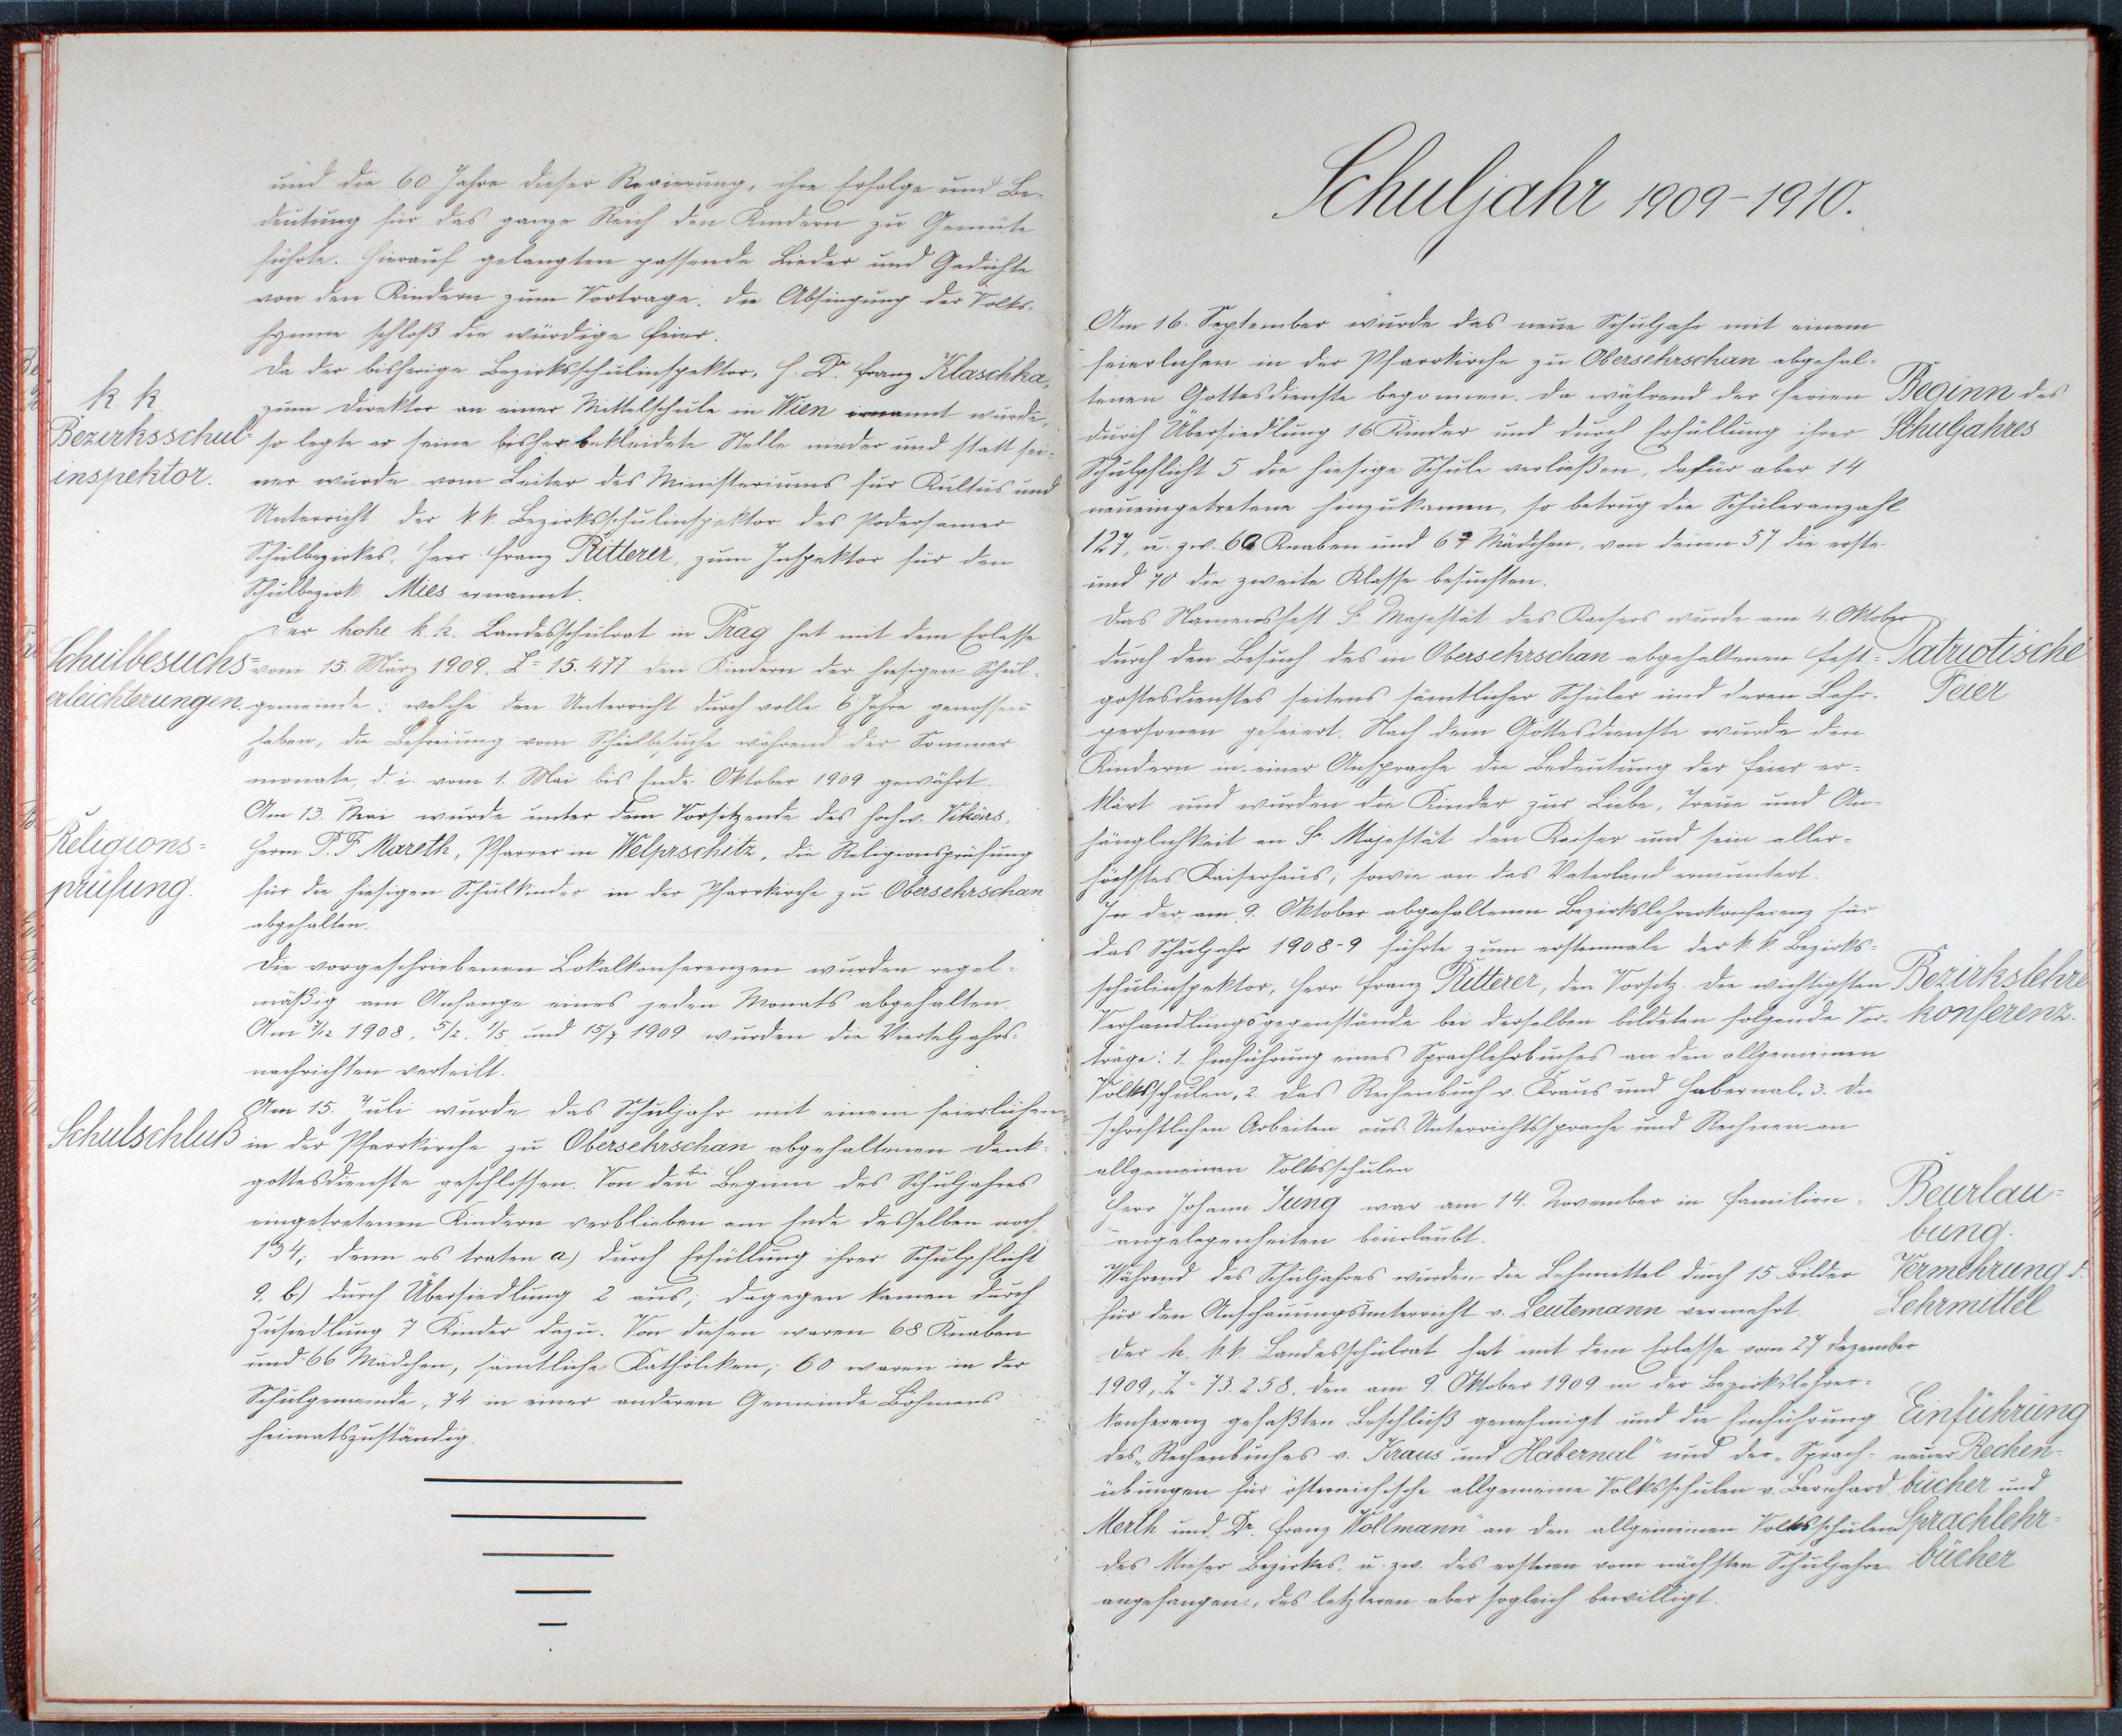 und die 60 Jahre dieser Regierung, ihre Erfolge und Be-
deutung für das ganze Reich den Kindern zu Gemüte
führte. Hierauf gelangten passende Lieder und Gedichte
von den Kindern zum Vortrage. Die Absingung der Volks-
hymne schloß die würdige Feier.
k. k.
Bezirksschul-
inspektor.
Da der bisherige Bezirksschulinspektor, H. Dr. Franz Klaschka,
zum Direktor an einer Mittelschule in Wien ernannt wurde,
so legte er seine bisher bekleidete Stelle nieder und statt sei-
ner wurde vom Leiter des Ministeriums für Kultus und
Unterricht der k.k. Bezirksschulinspektor des Podersamer
Schulbezirkes, Herr Franz Ritterer, zum Inspektor für den
Schulbezirk Mies ernannt.
Schulbesuchs-
erleichterungen.
Der hohe k.k. Landesschulrat in Prag hat mit dem Erlasse
vom 15. März 1909. Z= 15.477 den Kindern der hiesigen Schul-
gemeinde, welche den Unterricht durch volle 6 Jahre genossen
haben, die Befreiung vom Schulbesuche während der Sommer
monate, d. i. vom 1. Mai bis Ende Oktober 1909 gewährt.
Religions-
prüfung.
Am 13. Mai wurde unter dem Vorsitzende des hochw. Vikärs,
Herrn P. F. Mareth, Pfarrer in Welprschitz, die Religionsprüfung
für die hiesigen Schulkinder in der Pfarrkirche zu Obersehrschan
abgehalten.
Die vorgeschriebenen Lokalkonferenzen wurden regel-
mäßig am Anfange eines jeden Monats abgehalten.
Am 7/12 1908, 5/2, 1/5 und 15/7 1909 wurden die Vierteljahrs-
nachrichten verteilt.
Schulschluß
Am 15. Juli wurde das Schuljahr mit einem feierlichen
in der Pfarrkirche zu Obersehrschan abgehaltenen Dank-
gottesdienste geschlossen. Von den bei Beginn des Schuljahres
eingetretenen Kindern verblieben am Ende desselben noch
134; denn es traten a) durch Erfüllung ihrer Schulpflicht
9. b) durch Übersiedlung 2 aus; dagegen kamen durch
Zusiedlung 7 Kinder dazu. Von diesen waren 68 Knaben
und 66 Mädchen, sämtliche Katholiken; 60 waren in der
Schulgemeinde, 74 in einer anderen Gemeinde Böhmens
heimatszuständig.
Schuljahr 1909-1910.
Am 16. September wurde das neue Schuljahr mit einem
feierlichen in der Pfarrkirche zu Obersehrschan abgehal-
tenen Gottesdienste begonnen. Da während der Ferien
durch Übersiedlung 16 Kinder und durch Erfüllung ihrer
Schulpflicht 5 die hiesige Schule verließen, dafür aber 14
neueingetretene hinzukamen, so betrug die Schüleranzahl
127, u. zw. 60 Knaben und 67 Mädchen, von denen 57 die erste
und 70 die zweite Klasse besuchten.
Beginn des
Schuljahres
Das Namensfest Sr. Majestät des Kaisers wurde am 4. Oktober
durch den Besuch des in Obersehrschan abgehaltenen Fest-
gottesdienstes seitens sämtlicher Schüler und deren Lehr-
personen gefeiert. Nach dem Gottesdienste wurde den
Kindern in einer Ansprache die Bedeutung der Feier er-
klärt und wurden die Kinder zur Liebe, Treue und An-
hänglichkeit an Sr. Majestät den Kaiser und sein aller-
höchstes Kaiserhaus, sowie an das Vaterland ermuntert.
Patriotische
Feier
In der am 9. Oktober abgehaltenen Bezirkslehrerkonferenz für
das Schuljahr 1908-9 führte zum erstenmale der k.k. Bezirks-
schulinspektor, Herr Franz Ritterer, den Vorsitz. Die wichtigsten
Verhandlungsgegenstände bei derselben bildeten folgende Vor-
träge: 1. Einführung eines Sprachlehrbuches an den allgemeinen
Volksschulen, 2. Das Rechenbuch v. Kraus und Habernal. 3. Die
schriftlichen Arbeiten aus Unterrichtssprache und Rechnen an
allgemeinen Volksschulen
Bezirkslehre
konferenz.
Herr Johann Jung war am 14. November in Familien-
angelegenheiten beurlaubt.
Beurlau-
bung.
Während des Schuljahres wurden die Lehrmittel durch 15 Bilder
für den Anschauungsunterricht v. Leutemann vermehrt.
Vermehrung d.
Lehrmittel
Der h. k.k. Landesschulrat hat mit dem Erlasse vom 27 Dezember
1909, Z= 73.258, den am 9. Oktober 1909 in der Bezirkslehrer-
konferenz gefaßten Beschluß genehmigt und die Einführung
des „Rechenbuches v. Kraus und Habernal" und der „Sprach-
übungen für österreichische allgemeine Volksschulen v. Bernhard
Merth und Dr. Franz Wollmann" an den allgemeinen Volksschulen
des Mieser Bezirkes, u. zw. des ersteren vom nächsten Schuljahre
angefangen, des letzteren aber sogleich bewilligt.
Einführung
neuer Rechen-
bücher und
Sprachlehr-
bücher